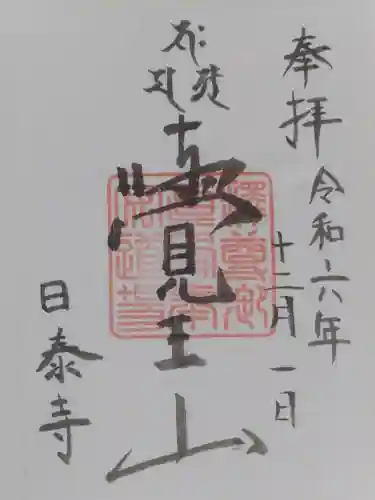 奉拝
令和六年
十二月一日
覺王山
日泰寺